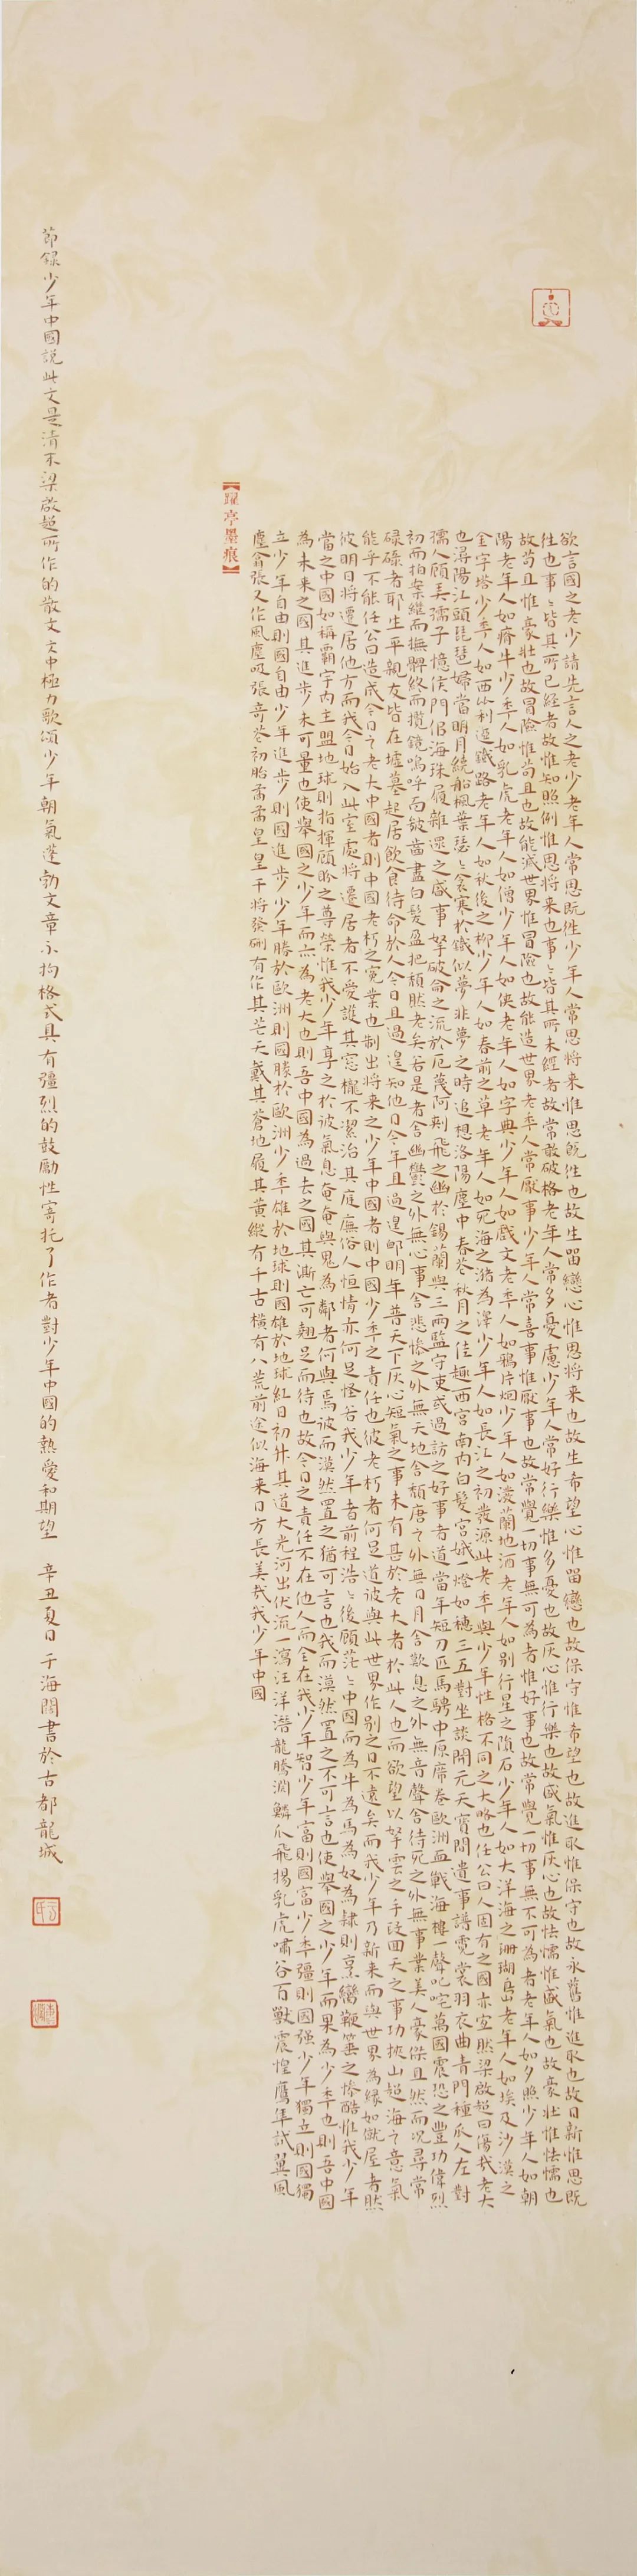 欲言國之老少請先言人之老少老年人常思既往少年人常思將来惟思既往也故生畱戀心惟思将来也故生希望心惟畱戀也故保守惟希望也故進取惟保守也故永舊惟進取也故日新惟思既
往也事〻皆其所已經者故惟知照例惟思将来也事〻皆其所未經者故常敢破格老年人常多憂慮少年人常好行樂惟多憂也故灰心惟行樂也故盛氣惟灰心也故怯懦惟盛氣也故豪壯惟怯懦也
故苟且惟豪壯也故冒險惟苟且也故能滅世界惟冒險也故能造世界老年人常厭事少年人常喜事惟厭事也故常覺一切事無可為者惟好事也故常覺一切事無不可為者老年人如夕照少年人如朝
陽老年人如瘠牛少年人如乳虎老年人如僧少年人如俠老年人如字典少年人如戲文老年人如鴉片烟少年人如潑蘭地酒老年人如别行星之隕石少年人如大洋海之珊瑚島老年人如埃及沙漠之
金字塔少年人如西比利亞鐵路老年人如秋後之柳少年人如春前之草老年人如死海之潴為澤少年人如長江之初發源此老年與少年性格不同之大略也任公曰人固有之國亦宜然梁啟超曰傷哉老大
也潯陽江頭琵琶婦當明月繞船楓葉瑟〻衾寒於鐵似夢非夢之時追想洛陽塵中春花秋月之佳趣西宮南内白髮宮娥一燈如穗三五對坐談開元天寶間遺事譜霓裳羽衣曲青門種瓜人左對
孺人顧弄孺子憶侯門似海珠履雜遝之盛事拏破侖之流於厄蔑阿剌飛之幽於錫蘭與三兩監守吏或過訪之好事者道當年短刀匹馬騁中原席卷歐洲血戰海樓一聲叱咤萬國震恐之豐功偉烈
初而拍案繼而撫髀終而攬鏡嗚呼面皴齒盡白髮盈把頹然老矣若是者舍幽鬱之外無心事舍悲慘之外無天地舍頹唐之外無日月舍歎息之外無音聲舍待死之外無事業美人豪傑且然而况尋常
碌碌者耶生平親友皆在墟墓起居飲食待命於人今日且過遑知他日今年且過遑卹明年普天下灰心短氣之事未有甚於老大者於此人也而欲望以拏雲之手段回天之事功挾山超海之意氣
能乎不能任公曰造成今日之老大中國者則中國老朽之寃業也制出将来之少年中國者則中國少年之責任也彼老朽者何足道彼與此世界作别之日不遠矣而我少年乃新来而與世界為縁如僦屋者然
彼明日将遷居他方而我今日始入此室處将遷居者不愛護其窓櫳不潔治其庭廡俗人恒情亦何足怪若我少年者前程浩〻後顧茫〻中國而為牛為馬為奴為隸則烹臠鞭箠之慘酷惟我少年
當之中國如稱霸宇内主盟地球則指揮顧盼之尊榮惟我少年享之於彼氣息奄奄與鬼為鄰者何與焉彼而漠然置之猶可言也我而漠然置之不可言也使舉國之少年而果為少年也則吾中國
為未来之國其進步未可量也使舉國之少年而亦為老大也則吾中國為過去之國其澌亡可翹足而待也故今日之責任不在他人而全在我少年智少年富則國富少年彊則國强少年獨立則國獨
立少年自由則國自由少年進步則國進步少年勝於歐洲則國勝於歐洲少年雄於地球則國雄於地球紅日初升其道大光河出伏流一瀉汪洋潜龍騰淵鱗爪飛揚乳虎嘯谷百獸震惶鷹隼試翼風
塵翕張又作風塵吸張奇花初胎矞矞皇皇干将發硎有作其芒天戴其蒼地履其黄縱有千古橫有八荒前途似海来日方長美哉我少年中國
【躍亭墨痕】
節錄少年中國説此文是清末梁啟超所作的散文文中極力歌頌少年朝氣蓬勃文章不拘格式具有彊烈的鼓勵性寄托了作者對少年中國的熱愛和期望 辛丑夏日于海闊書於古都龍城